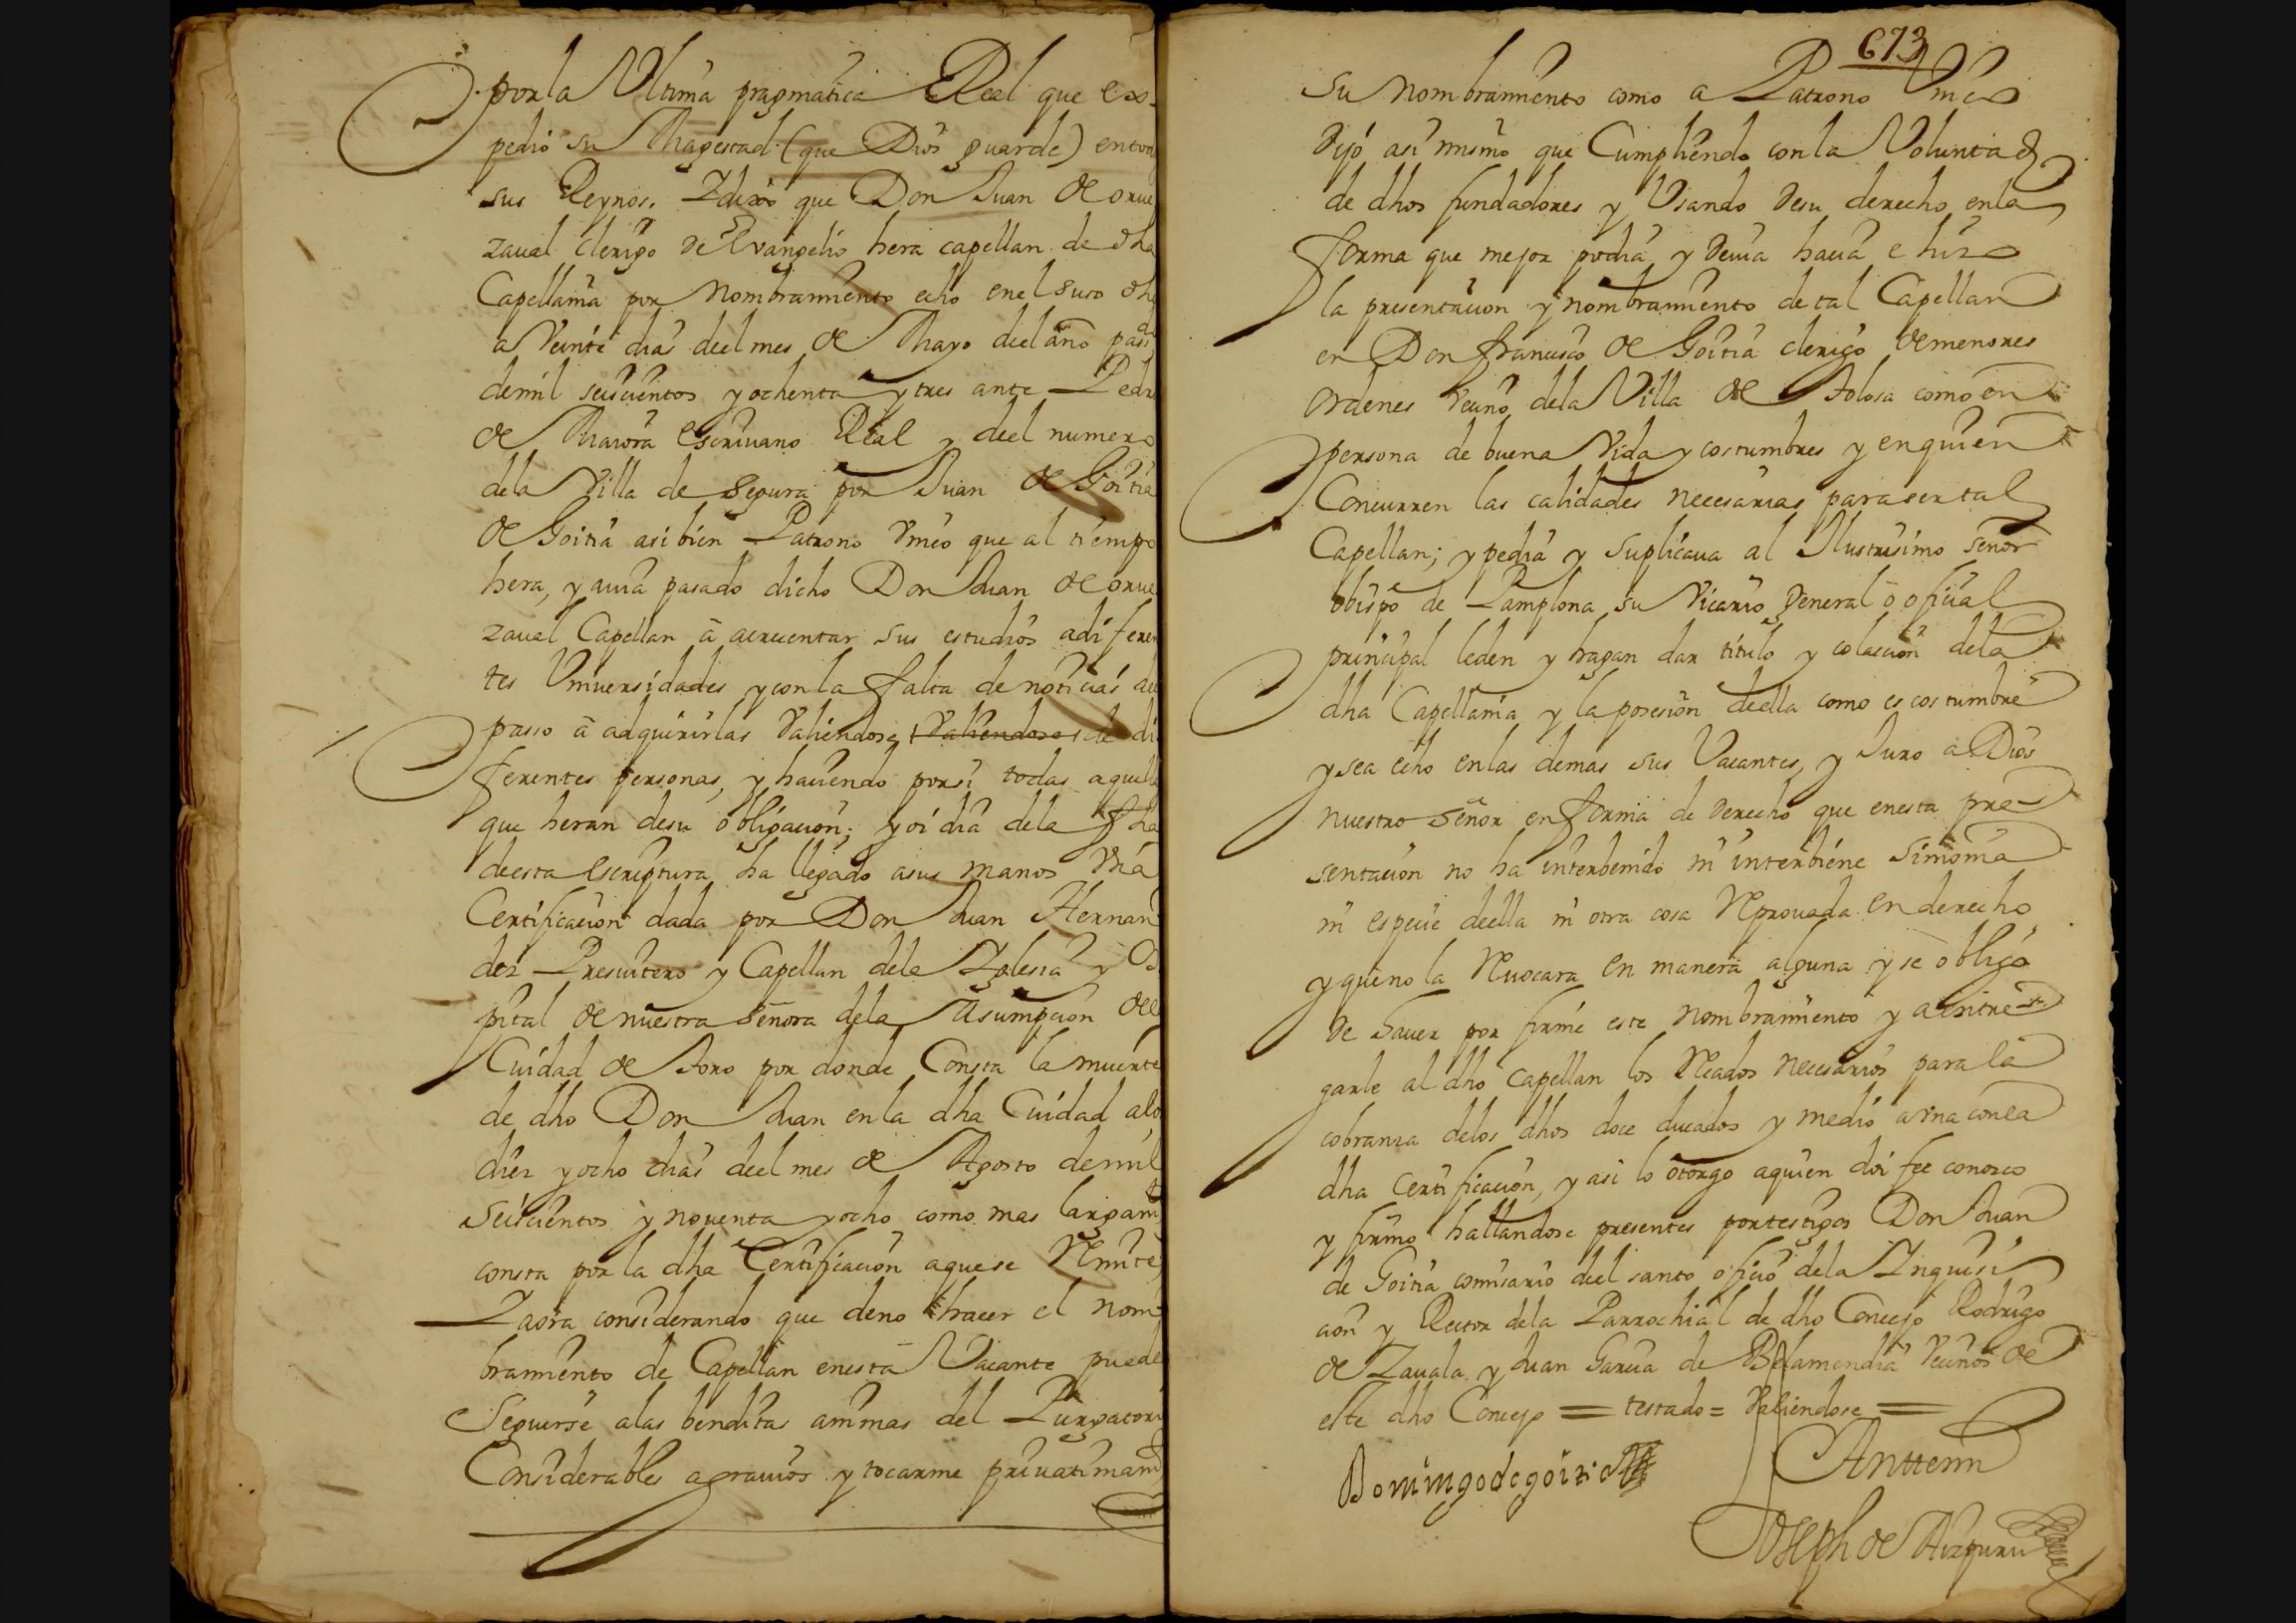 por la Ultima pragmatica Real que ex-
pedio su Magestad (que Dios guarde) en
sus Reynos. Y dixo que Don Juan de orue
zaual clerigo de Evangelio hera capellan de dha
Capellania por Nombramiento echo en el suso
a Veinte dias deel mes de Mayo deel año
de mil seiscientos y ochenta y tres ante Pedro
de escriuano Real y deel numero
de la Villa de Segura por Juan de Goitia
de Goitia asi bien Patrono Vnico que al tiempo
hera, y auia pasado dicho Don Juan de orue
zaual Capellan a acrecentar sus estudios a diferen
tes Vniuersidades y con la falta de noticias
passo a adquirirlas Valiendose Valiendose de di
ferentes personas, y haciendo por si todas aquellas
que heran de su obligacion; y oi dia de la fha
de esta escriptura ha llegado a sus manos Vna
Certificacion dada por Don Juan Hernan
dez Presuitero y Capellan de la Yglesia y Os
pital de nuestra señora de la Asumpcion de
Ciudad de Toro por donde Consta la muerte
de dho Don Juan en la dha Ciudad a los
diez y ocho dias deel mes de Agosto de mil
Seiscientos y nouenta y ocho como mas largamte
consta por la dha Certificacion a que se Remite
Y aora considerando que de no hacer el nom-
bramiento de Capellan en esta Vacante puede
Seguirse a las benditas animas del Purgatorio
Considerables agrauios y tocarme priuatiuamte
673
Su Nombramiento como a Patrono Vnico
Dijo asi mismo que Cumpliendo con la Voluntad
de dhos fundadores y Vsando de su derecho en la
forma que mejor podia y deuia hacia e hizo
la presentacion y nombramiento de tal Capellan
en Don francisco de Goitia clerigo de menores
Ordenes Vecino de la Villa de Tolosa como en
persona de buena Vida y costumbres y en quien
Concurren las calidades necesarias para ser tal
Capellan; y pedia y Suplicaua al Ilustrisimo señor
obispo de Pamplona su Vicario General o oficial
principal le den y hagan dar titulo y colacion de la
dha Capellania y la posesion deella como es costumbre
y sea echo en las demas sus Vacantes, y Juro a Dios
nuestro señor en forma de derecho que en esta pre-
sentacion no ha interbenido ni interbiene Simonia
ni especie deella ni otra cosa Reprouada en derecho
y que no la Reuocara en manera alguna y se obligo
de hauer por firme este nombramiento y a entre-
garle al dho capellan los Recados necesarios para la
cobranza de los dhos doce ducados y medio a vna con la
dha Certificacion, y asi lo otorgo a quien doi fee conozco
y firmo hallandose presentes por testigos Don Juan
de Goitia comisario deel santo oficio de la Inquisi
cion y Rector de la Parrochial de dho Concejo Rodrigo
de Zauala y Juan Garcia de Belamendia Vecinos de
este dho Concejo = testado = Valiendose =
Domingo de goitia
Ante mi
Joseph de Aizpuru